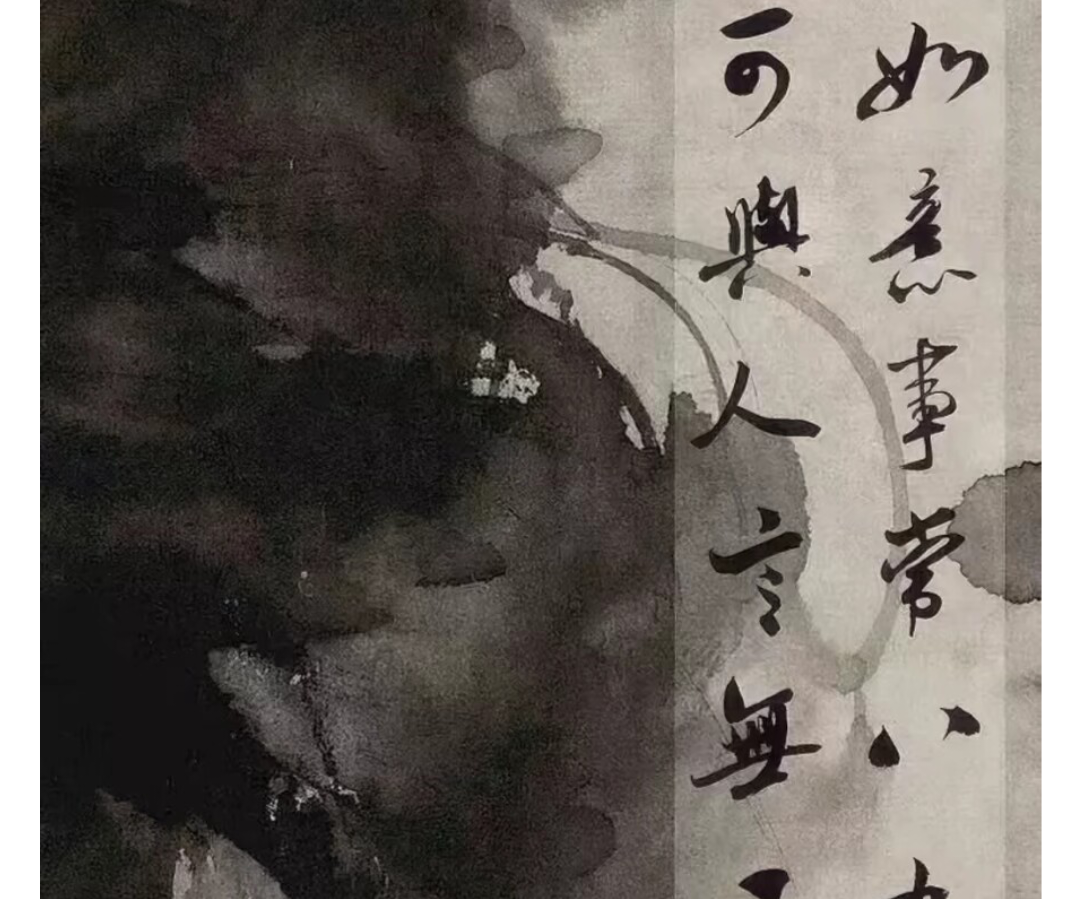 如意事常八
可與人言無